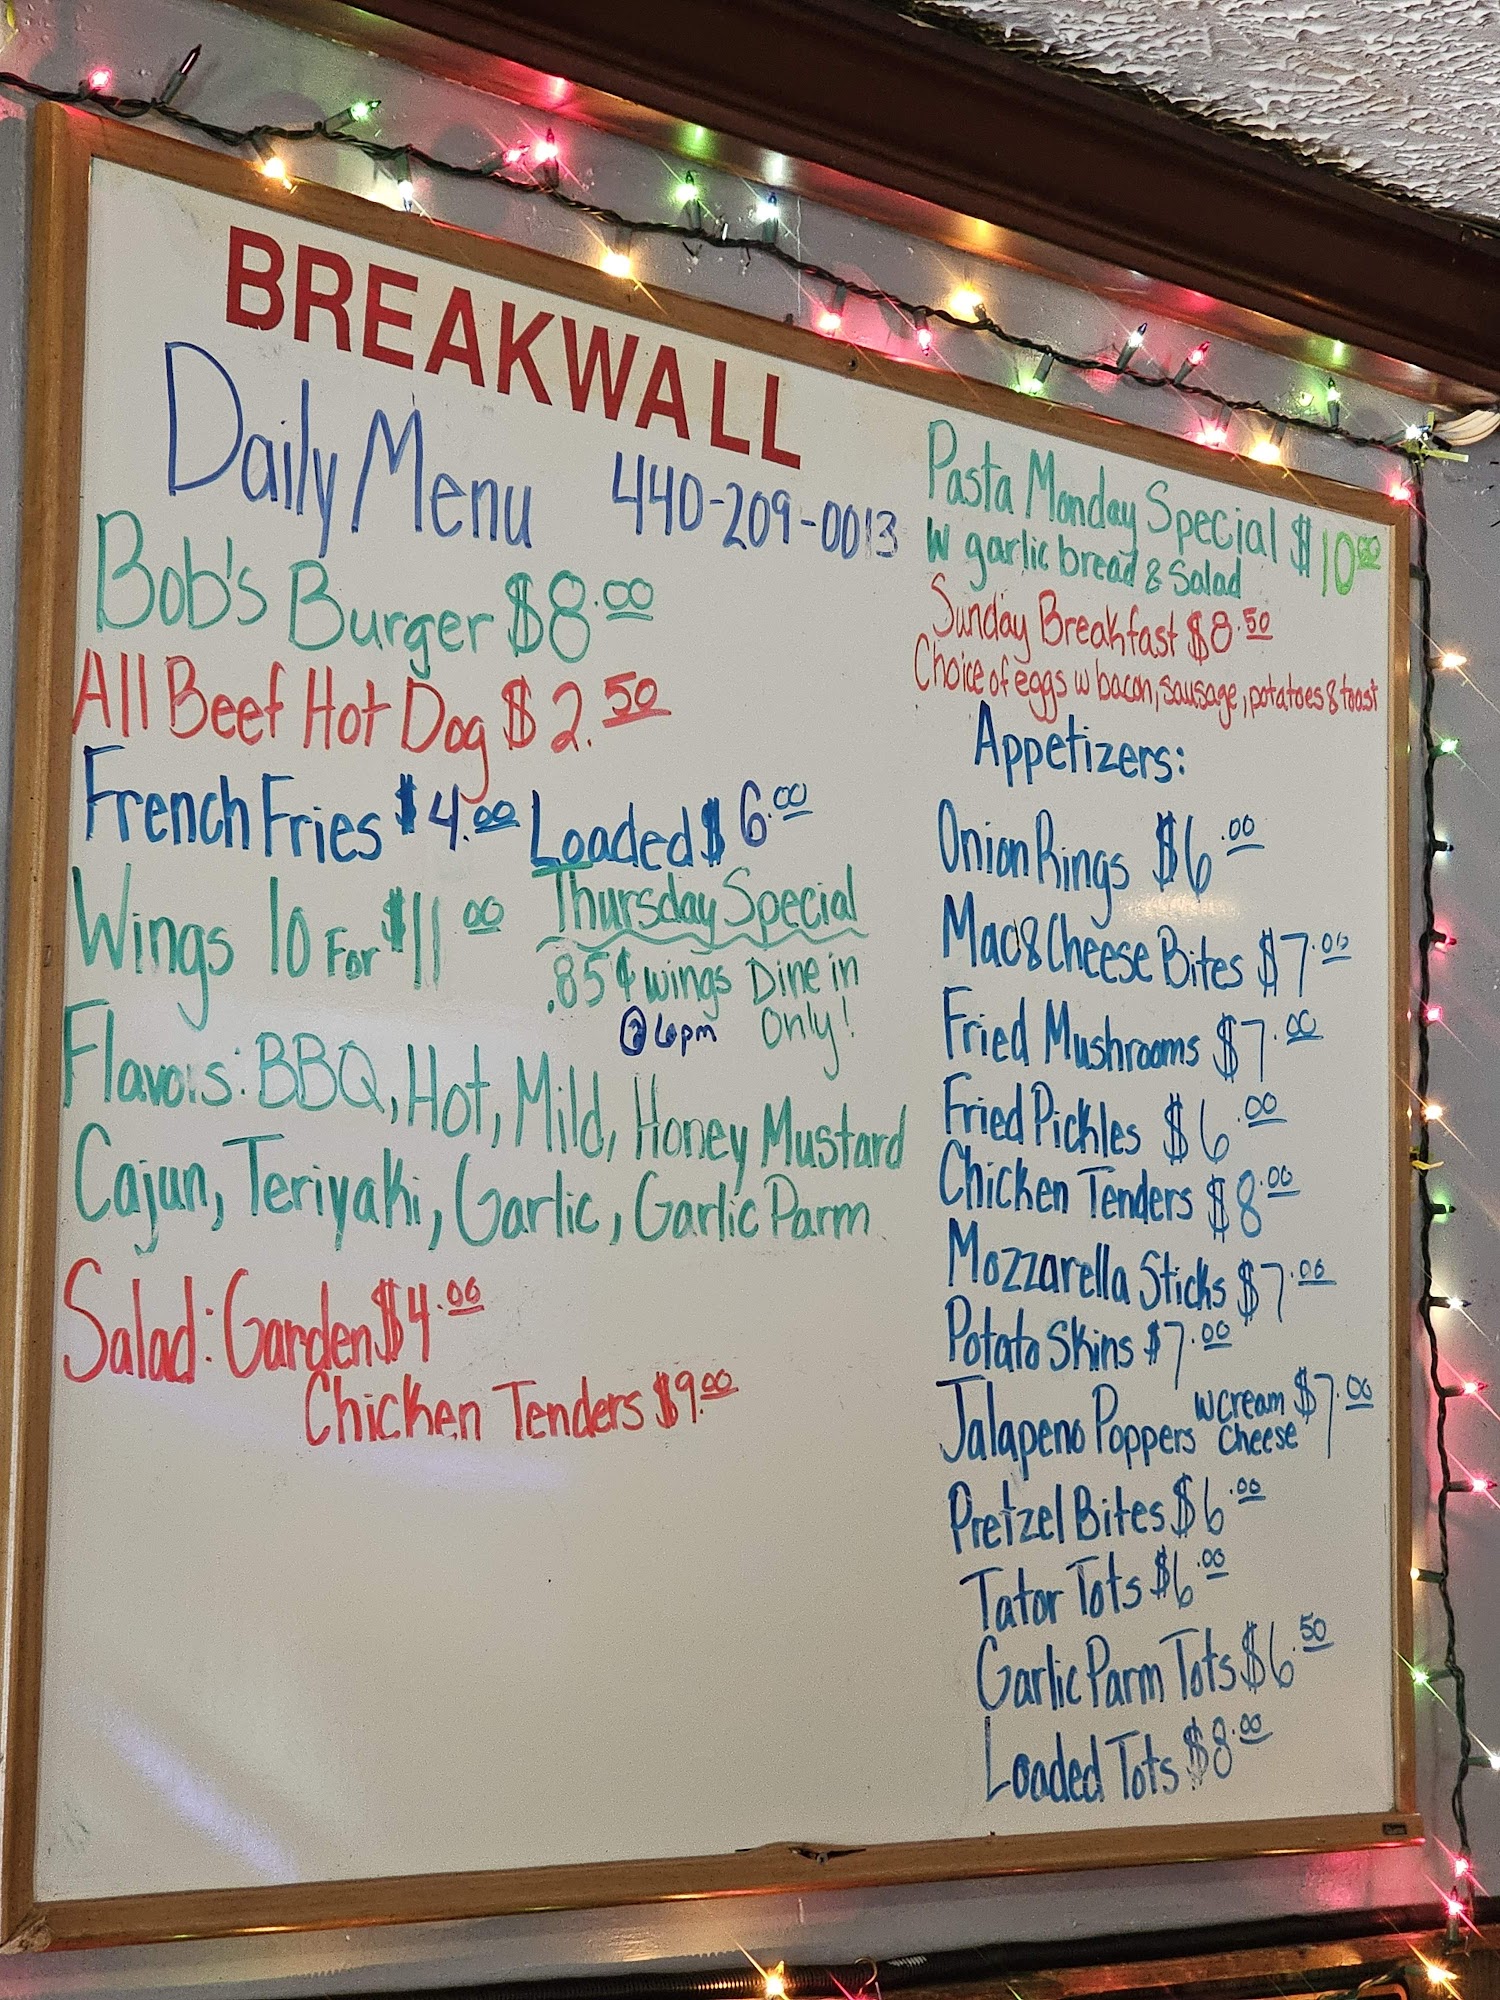 BREAKWALL
Daily Menu 440-209-0013
Bob's Burger $8.00
All Beef Hot Dog $2.50
French Fries $4.00 Loaded $6.00
Wings 10 For $11.00
Thursday Special
.85¢ wings Dine in
@6pm Only!
Flavors: BBQ, Hot, Mild, Honey Mustard
Cajun, Teriyaki, Garlic, Garlic Parm
Salad: Garden $4.00
Chicken Tenders $9.00
Pasta Monday Special $10.00
W garlic bread & Salad
Sunday Breakfast $8.50
Choice of eggs w bacon, sausage, potatoes & toast
Appetizers:
Onion Rings $6.00
Mac & Cheese Bites $7.00
Fried Mushrooms $7.00
Fried Pickles $6.00
Chicken Tenders $8.00
Mozzarella Sticks $7.00
Potato Skins $7.00
Jalapeno Poppers w cream cheese $7.00
Pretzel Bites $6.00
Tator Tots $6.00
Garlic Parm Tots $6.50
Loaded Tots $8.00